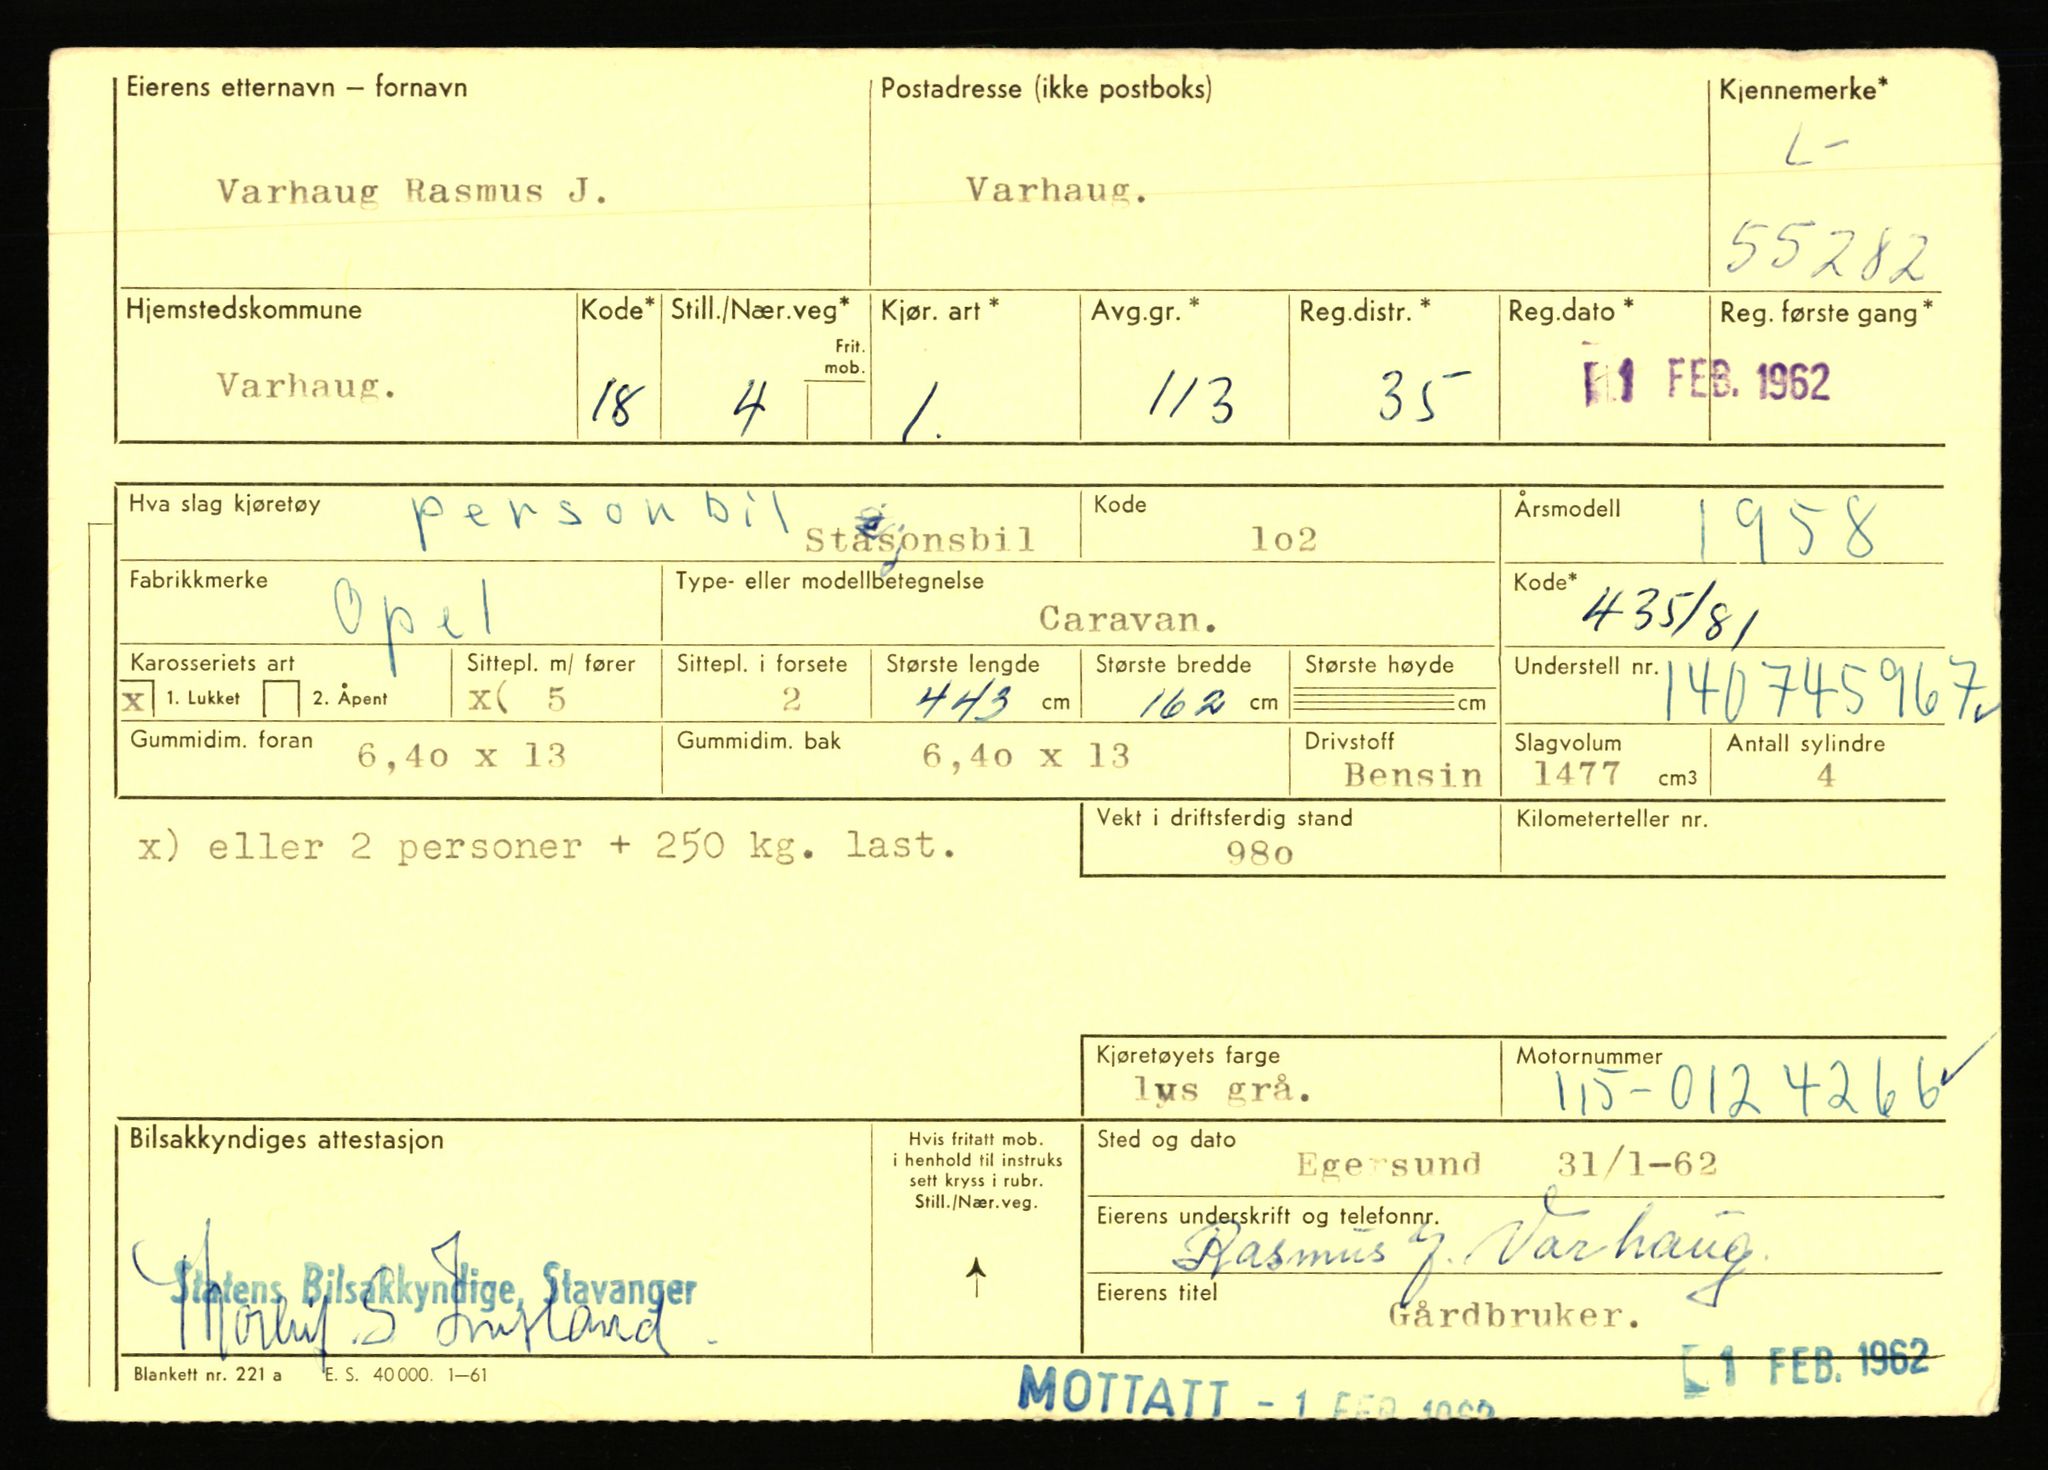 Eierens etternavn – fornavn
Postadresse (ikke postboks)
Kjennemerke*
L-
Varhaug Rasmus J.
Varhaug.
55282
Hjemstedskommune
Kode*
Still./Nær.veg*
Kjør. art *
Avg.gr. *
Reg.distr. *
Reg.dato *
Reg. første gang*
Frit. mob.
Varhaug.
18
4
1.
113
35
1 FEB. 1962
Hva slag kjøretøy
personbil
Stasjonsbil
Kode
1o2
Årsmodell
1958
Fabrikkmerke
Opel
Type- eller modellbetegnelse
Caravan.
Kode*
435/81
Karosseriets art
x 1. Lukket
2. Åpent
Sittepl. m/ fører
x( 5
Sittepl. i forsete
2
Største lengde
443 cm
Største bredde
162 cm
Største høyde
cm
Understell nr.
140745967
Gummidim. foran
6,4o x 13
Gummidim. bak
6,4o x 13
Drivstoff
Bensin
Slagvolum
1477 cm3
Antall sylindre
4
x) eller 2 personer + 250 kg. last.
Vekt i driftsferdig stand
98o
Kilometerteller nr.
Kjøretøyets farge
lys grå.
Motornummer
115-0124266
Bilsakkyndiges attestasjon
Hvis fritatt mob.
i henhold til instruks
sett kryss i rubr.
Still./Nær.veg.
Sted og dato
Egersund 31/1-62
Eierens underskrift og telefonnr.
Rasmus J. Varhaug.
Statens Bilsakkyndige, Stavanger
Eierens titel
Gårdbruker.
Blankett nr. 221 a E. S. 40 000. 1–61
MOTTATT - 1 FEB. 1962
1 FEB. 1962